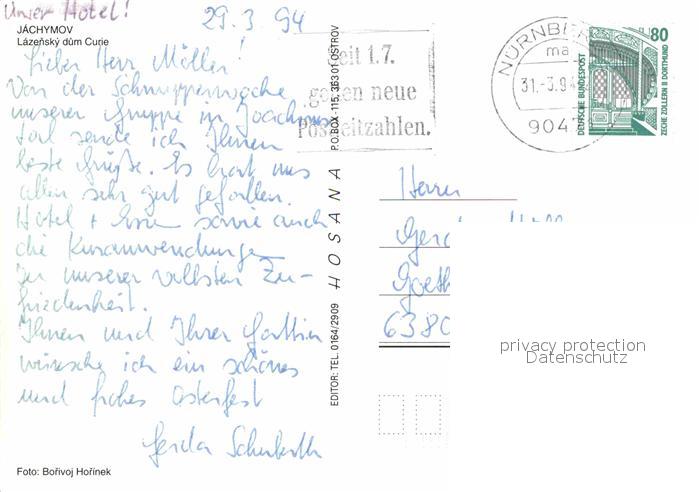 Unser Hotel!
29.3.94
JÁCHYMOV
Lázeňský dům Curie
Lieber Herr Möller!
Von der Schnupperwoche
unserer Gruppe in Joachims
tal sende ich Ihnen
beste Grüße. Es hat uns
allen sehr gut gefallen.
Hotel + Essen sowie auch
die Kuranwendungen
zu unserer vollsten Zu-
friedenheit.
Ihnen und Ihrer Gattin
wünsche ich ein schönes
und frohes Osterfest
Gerda
Foto: Bořivoj Hořínek
EDITOR: TEL. 0164/2909 HOSANA P.O.BOX 115, 363 01 OSTROV
Seit 1.7.
gelten neue
Postleitzahlen.
NÜRNBERG
ma
31.-3.94
904
80
DEUTSCHE BUNDESPOST
ZECHE ZOLLERN II DORTMUND
Herrn
Goeth
6380
privacy protection
Datenschutz